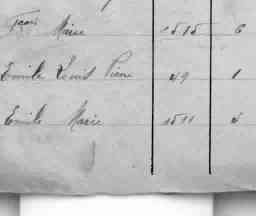 Marie 1515 6
Emile Louis Pierre 49 1
Emile Marie 1511 5